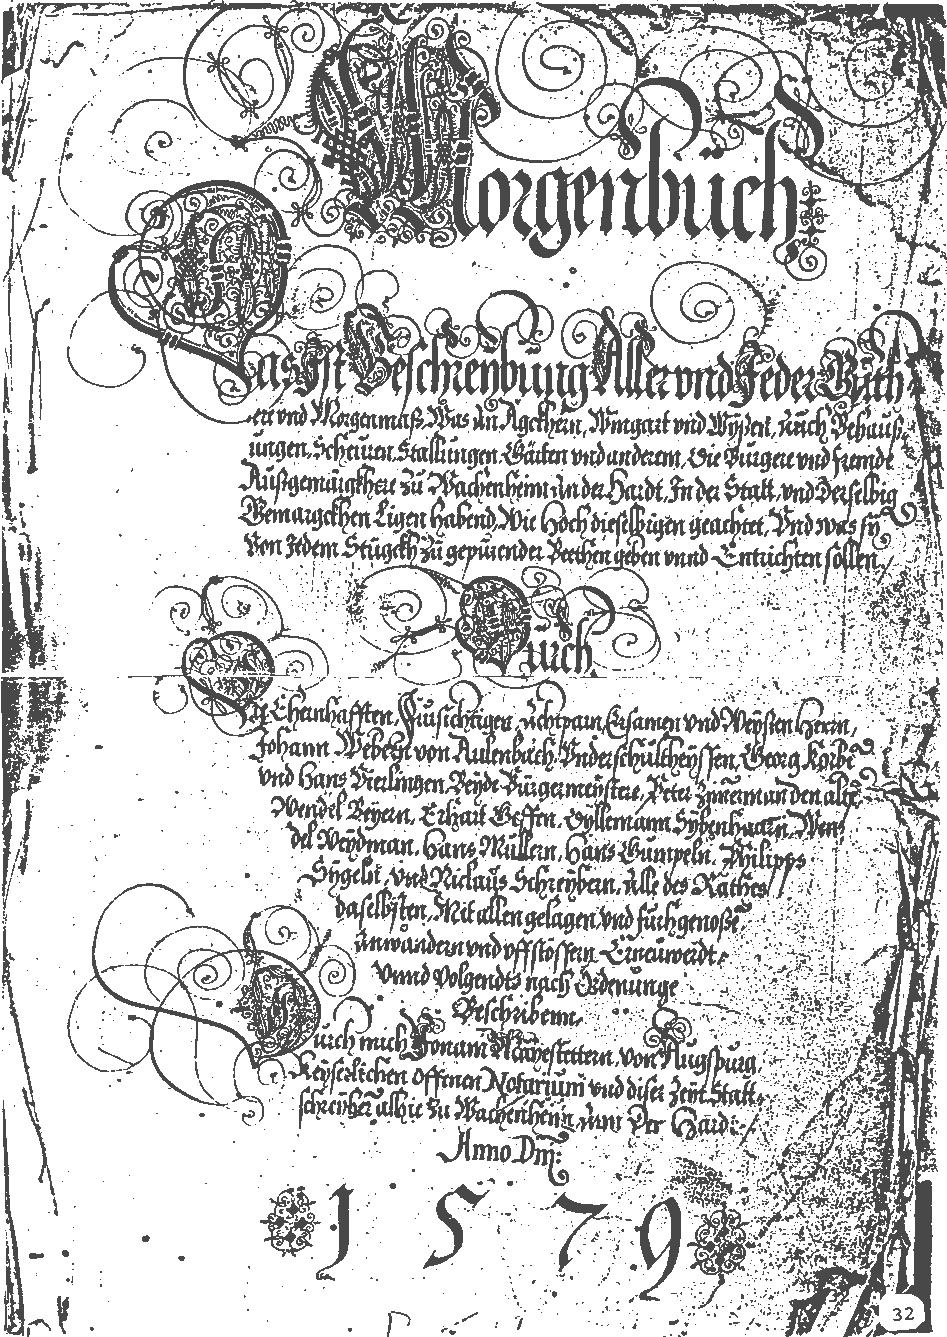 Morgenbuch
Das Ist Beschreybung Aller vnd Jeder Güth
ere vnd Morgenmaß, Was An Agckhern, Wingart vnd Wyßen, Auch Behauß,
ungen, Scheuren, Stallungen, Gärten vnd anderem, Die Burgere vnd fremde
Außgemärgkhere zu Wachenheim An der Hardt, In der Statt, vnd Derselbig
Gemargckhen Eigen habend, Wie Hoch dieselbigen geachtet, Vnd was sy
Von Jedem Stügckh zu gepürender Beethen geben vnnd Entrichten sollen,
Durch
Die Ehrnhafften, Fürsichtigen, Achtparn, Ersamen vnd Weysen Herrn,
Johann Webern von Aulenbach, Vnderschultheyssen, Georg Korbe
vnd Hans Vierlingen, Beyde Bürgermeystere, Peter Zimerman den alte,
Wendel Beyern, Erhart Geffen, Vollemann Sybenhaarn, Wen
del Weydman, Hans Müllern, Hans Gumpeln, Philipps
Sygeln, vnd Niclaus Schreybern, Alle des Rathes
daselbsten, Mit allen gelagen, vnd furchgenoße,
Anwandern vnd vffstössern, Erneuwerdt,
Vnnd Volgendts nach Ordenunge
Beschribenn,
Durch mich Jonam von Augspurg,
Keyserlichen offenen Notarium vnd diser Zeyt Statt,
schreyber alhie zu Wachenheim, Ann Der Hardt.
Anno Dm̃:
1579
32